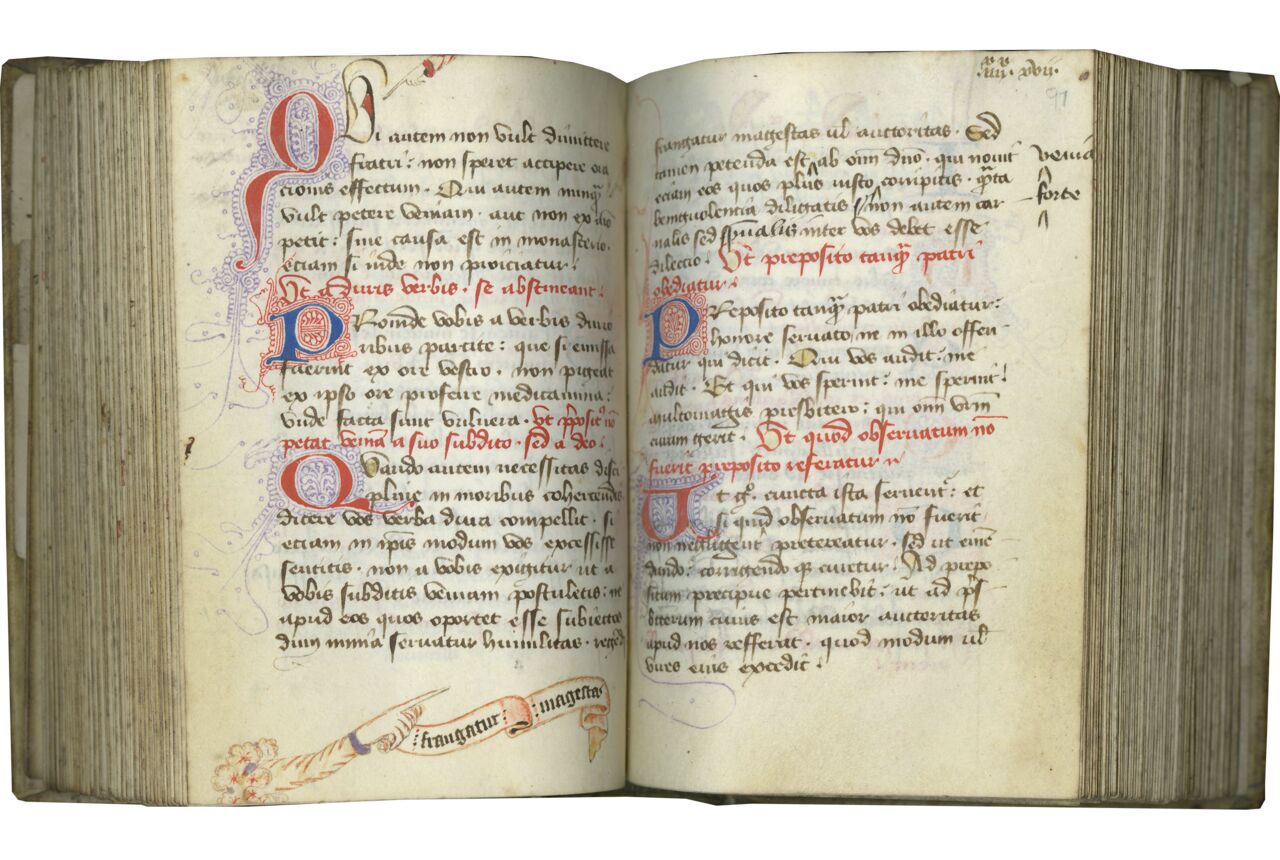 Si autem non vult dimittere
fratri: non speret accipere ora
cionis effectum. Qui autem nunqȝ
vult petere veniam. aut non ex aīo
petit: sine causa est in monasterio.
eciam si inde non proiciatur.
Ut a duris verbis. se abstineant.
PRoinde vobis a verbis durio
ribus parcite: que si emissa
fuerint ex ore vestro. non pigeat
ex ipso ore proferre medicamina:
unde facta sunt vulnera. Ut pposit9 nō
petat venīa a suo subdito. sed a deo.
QVando autem necessitas disci
pline in moribus cohercendis
dicere vos verba dura compellit. si
eciam in ipīs modum vos excessisse
sentitis. non a vobis exigitur ut a
vobis subditis veniam postuletis: ne
apud eos quos oportet esse subiectos
dum nimīa servatur humilitas. regēdi
frangatur: magestas
iiii. xvii.
97
frangatur magestas vl auctoritas. Sed
tamen petenda est ab omī dnō. qui novit venīa
eciam eos quos plus iusto corripitis. qāta
benivolencia diligatis non autem car forte
nalis sed spūalis inter vos debet esse
dilectio. Ut preposito tanqȝ patri
obediatur.
PReposito tanqȝ patri obediatur:
honore servato ne in illo offen
datur qui dicit. Qui vos audit: me
audit. Et qui vos sperint: me sperint.
multomagis presbitero: qui omī vrm̄
curam gerit. Ut quod observatum nō
fuerit preposito referatur
Ut gͦ. cuncta ista servent᷑: et
si quid observatum nō fuerit
non negligent᷑ pretereatur. sed ut emē
dando: corrigendo qȝ curetur. Ad prepo
situm precipue pertinebit: ut ad prīs
biterum cuius est maior auctoritas
apud nos refferat. quod modum vl
vires eius excedit.